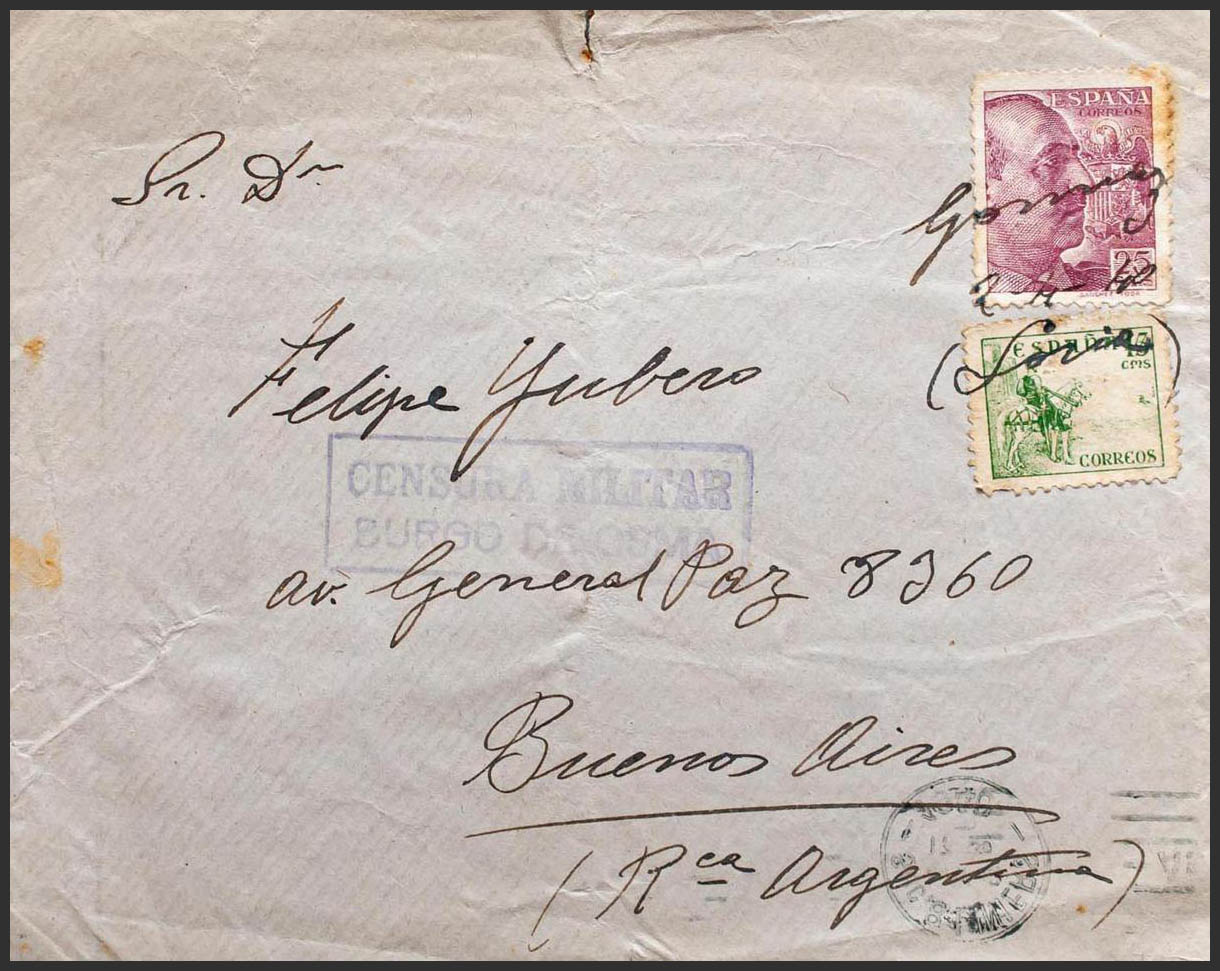 Sr. Dr
ESPAÑA
CORREOS
25
Gormaz
2-4-40
(Soria)
ESPAÑA 15
CMS
CORREOS
Felipe Yubero
CENSURA MILITAR
BURGO DE OSMA
av. General Paz 8360
Buenos Aires
(Rca Argentina)